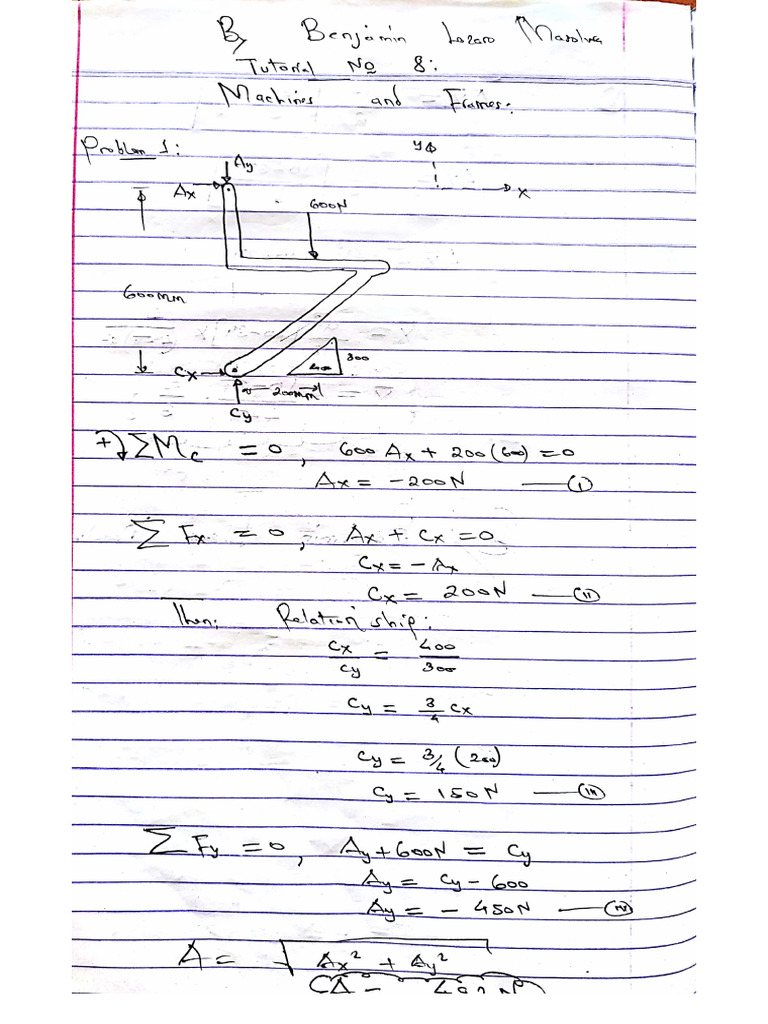 By Benjamin Lazaro Masolwa
Tutorial No 8:
Machines and Frames:
Problem 1:
Ay
y
Ax
x
600N
600mm
300
400
Cx
200mm
Cy
+ ΣMc = 0, 600 Ax + 200(600) = 0
Ax = -200N — (i)
Σ Fx = 0, Ax + Cx = 0
Cx = -Ax
Cx = 200N — (ii)
Then: Relation ship:
Cx/Cy = 400/300
Cy = 3/4 Cx
Cy = 3/4 (200)
Cy = 150N — (iii)
Σ Fy = 0, Ay + 600N = Cy
Ay = Cy - 600
Ay = - 450N — (iv)
A = √Ax² + Ay²